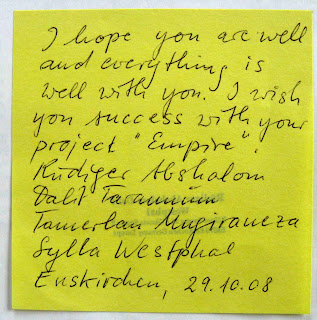 I hope you are well
and everything is
well with you. I wish
you success with your
project "Empire".
Rüdiger Abshalom
Dalit Tarannum
Tamerlan Mugiraneza
Sylla Westphal
Euskirchen, 29.10.08